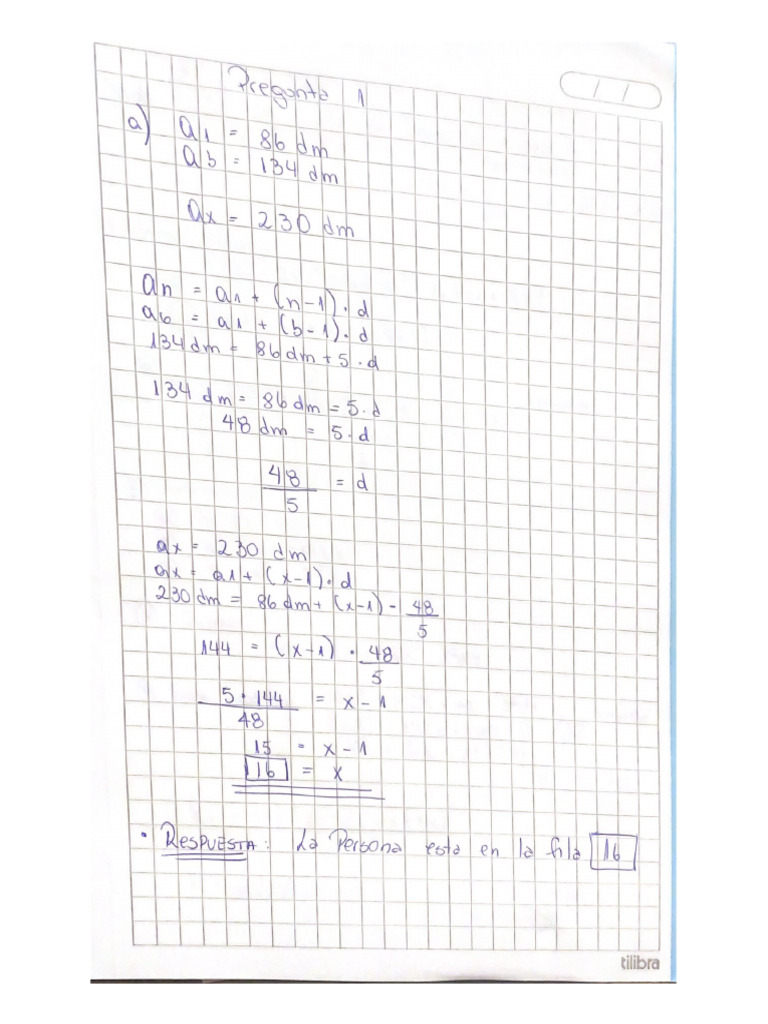 Pregunta 1
/ /
a) a1 = 86 dm
a6 = 134 dm
ax = 230 dm
an = a1 + (n-1) · d
a6 = a1 + (6-1) · d
134 dm = 86 dm + 5 · d
134 dm = 86 dm = 5 · d
48 dm = 5 · d
48/5 = d
ax = 230 dm
ax = a1 + (x-1) · d
230 dm = 86 dm + (x-1) - 48/5
144 = (x-1) · 48/5
5 · 144/48 = x - 1
15 = x - 1
16 = x
• RESPUESTA: La Persona esta en la fila 16
tilibra